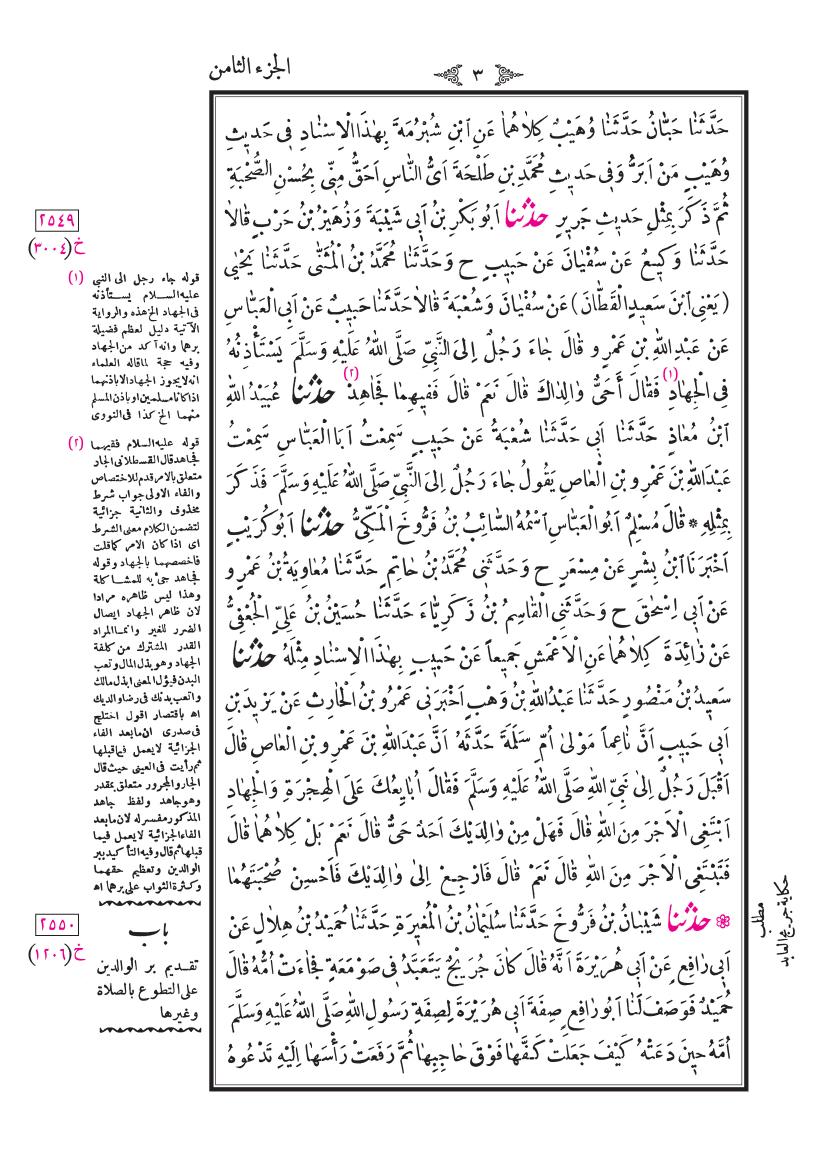 ٣
الجزء الثامن
حَدَّثَنَا حَبَّانُ حَدَّثَنَا وُهَيْبٌ كِلَاهُمَا عَنِ ابْنِ شُبْرُمَةَ بِهٰذَا الْاِسْنَادِ فِى حَدِيثِ
وُهَيْبٍ مَنْ اَبَرُّ وَفِى حَدِيثِ مُحَمَّدِ بْنِ طَلْحَةَ اَىُّ النَّاسِ اَحَقُّ مِنِّى بِحُسْنِ الصُّحْبَةِ
ثُمَّ ذَكَرَ بِمِثْلِ حَدِيثِ جَرِيرٍ حَدَّثَنَا اَبُو بَكْرِ بْنُ اَبِى شَيْبَةَ وَزُهَيْرُ بْنُ حَرْبٍ قَالَا
حَدَّثَنَا وَكِيعٌ عَنْ سُفْيَانَ عَنْ حَبِيبٍ ح وَحَدَّثَنَا مُحَمَّدُ بْنُ الْمُثَنَّى حَدَّثَنَا يَحْيَى
(يَعْنِى ابْنَ سَعِيدٍ الْقَطَّانَ) عَنْ سُفْيَانَ وَشُعْبَةَ قَالَا حَدَّثَنَا حَبِيبٌ عَنْ اَبِى الْعَبَّاسِ
عَنْ عَبْدِ اللّٰهِ بْنِ عَمْرٍو قَالَ جَاءَ رَجُلٌ اِلَى النَّبِىِّ صَلَّى اللّٰهُ عَلَيْهِ وَسَلَّمَ يَسْتَأْذِنُهُ
فِى الْجِهَادِ (١) فَقَالَ أَحَىٌّ وَالِدَاكَ قَالَ نَعَمْ قَالَ فَفِيهِمَا فَجَاهِدْ (٢) حَدَّثَنَا عُبَيْدُ اللّٰهِ
ابْنُ مُعَاذٍ حَدَّثَنَا اَبِى حَدَّثَنَا شُعْبَةُ عَنْ حَبِيبٍ سَمِعْتُ اَبَا الْعَبَّاسِ سَمِعْتُ
عَبْدَ اللّٰهِ بْنَ عَمْرِو بْنِ الْعَاصِ يَقُولُ جَاءَ رَجُلٌ اِلَى النَّبِىِّ صَلَّى اللّٰهُ عَلَيْهِ وَسَلَّمَ فَذَكَرَ
بِمِثْلِهِ * قَالَ مُسْلِمٌ اَبُو الْعَبَّاسِ اسْمُهُ السَّائِبُ بْنُ فَرُّوخَ الْمَكِّىُّ حَدَّثَنَا اَبُو كُرَيْبٍ
اَخْبَرَنَا ابْنُ بِشْرٍ عَنْ مِسْعَرٍ ح وَحَدَّثَنِى مُحَمَّدُ بْنُ حَاتِمٍ حَدَّثَنَا مُعَاوِيَةُ بْنُ عَمْرٍو
عَنْ اَبِى اِسْحٰقَ ح وَحَدَّثَنِى الْقَاسِمُ بْنُ زَكَرِيَّاءَ حَدَّثَنَا حُسَيْنُ بْنُ عَلِىٍّ الْجُعْفِىُّ
عَنْ زَائِدَةَ كِلَاهُمَا عَنِ الْاَعْمَشِ جَمِيعاً عَنْ حَبِيبٍ بِهٰذَا الْاِسْنَادِ مِثْلَهُ حَدَّثَنَا
سَعِيدُ بْنُ مَنْصُورٍ حَدَّثَنَا عَبْدُ اللّٰهِ بْنُ وَهْبٍ اَخْبَرَنِى عَمْرُو بْنُ الْحَارِثِ عَنْ يَزِيدَ بْنِ
اَبِى حَبِيبٍ اَنَّ نَاعِماً مَوْلَى اُمِّ سَلَمَةَ حَدَّثَهُ اَنَّ عَبْدَ اللّٰهِ بْنَ عَمْرِو بْنِ الْعَاصِ قَالَ
اَقْبَلَ رَجُلٌ اِلَى نَبِىِّ اللّٰهِ صَلَّى اللّٰهُ عَلَيْهِ وَسَلَّمَ فَقَالَ اُبَايِعُكَ عَلَى الْهِجْرَةِ وَالْجِهَادِ
اَبْتَغِى الْاَجْرَ مِنَ اللّٰهِ قَالَ فَهَلْ مِنْ وَالِدَيْكَ اَحَدٌ حَىٌّ قَالَ نَعَمْ بَلْ كِلَاهُمَا قَالَ
فَتَبْتَغِى الْاَجْرَ مِنَ اللّٰهِ قَالَ نَعَمْ قَالَ فَارْجِعْ اِلَى وَالِدَيْكَ فَاَحْسِنْ صُحْبَتَهُمَا
❁ حَدَّثَنَا شَيْبَانُ بْنُ فَرُّوخَ حَدَّثَنَا سُلَيْمَانُ بْنُ الْمُغِيرَةِ حَدَّثَنَا حُمَيْدُ بْنُ هِلَالٍ عَنْ
اَبِى رَافِعٍ عَنْ اَبِى هُرَيْرَةَ اَنَّهُ قَالَ كَانَ جُرَيْجٌ يَتَعَبَّدُ فِى صَوْمَعَةٍ فَجَاءَتْ اُمُّهُ قَالَ
حُمَيْدٌ فَوَصَفَ لَنَا اَبُو رَافِعٍ صِفَةَ اَبِى هُرَيْرَةَ لِصِفَةِ رَسُولِ اللّٰهِ صَلَّى اللّٰهُ عَلَيْهِ وَسَلَّمَ
اُمَّهُ حِينَ دَعَتْهُ كَيْفَ جَعَلَتْ كَفَّهَا فَوْقَ حَاجِبِهَا ثُمَّ رَفَعَتْ رَأْسَهَا اِلَيْهِ تَدْعُوهُ
٢٥٤٩
خ (٣٠٠٤)
(١) قوله جاء رجل الى النبى
عليه السلام يستأذنه
فى الجهاد الخ هذه والرواية
الآتية دليل لعظم فضيلة
برهما وانه آكد من الجهاد
وفيه حجة لما قاله العلماء
انه لايجوز الجهاد الا باذنهما
اذا كانا مسلمين او باذن المسلم
منهما الخ كذا فى النووى
(٢) قوله عليه السلام ففيهما
فجاهد قال القسطلانى الجار
متعلق بالامر قدم للاختصاص
والفاء الاولى جواب شرط
محذوف والثانية جزائية
لتضمن الكلام معنى الشرط
اى اذا كان الامر كما قلت
فاخصصهما بالجهاد وقوله
فجاهد جىء به للمشاكلة
وهذا ليس ظاهره مرادا
لان ظاهر الجهاد ايصال
الضرر للغير وانما المراد
القدر المشترك من كلفة
الجهاد وهو بذل المال وتعب
البدن فيؤل المعنى ابذل مالك
واتعب بدنك فى رضا والديك
اه باقتصار اقول اختلج
فى صدرى ان مابعد الفاء
الجزائية لايعمل فيما قبلها
ثم رأيت فى العينى حيث قال
الجار والمجرور متعلق بمقدر
وهو جاهد ولفظ جاهد
المذكور مفسر له لان مابعد
الفاء الجزائية لايعمل فيما
قبلها ثم قال وفيه التأكيد ببر
الوالدين وتعظيم حقهما
وكثرة الثواب على برهما اه
٢٥٥٠
خ (١٢٠٦)
باب
تقديم بر الوالدين
على التطوع بالصلاة
وغيرها
مطلب
حكاية جريج العابد